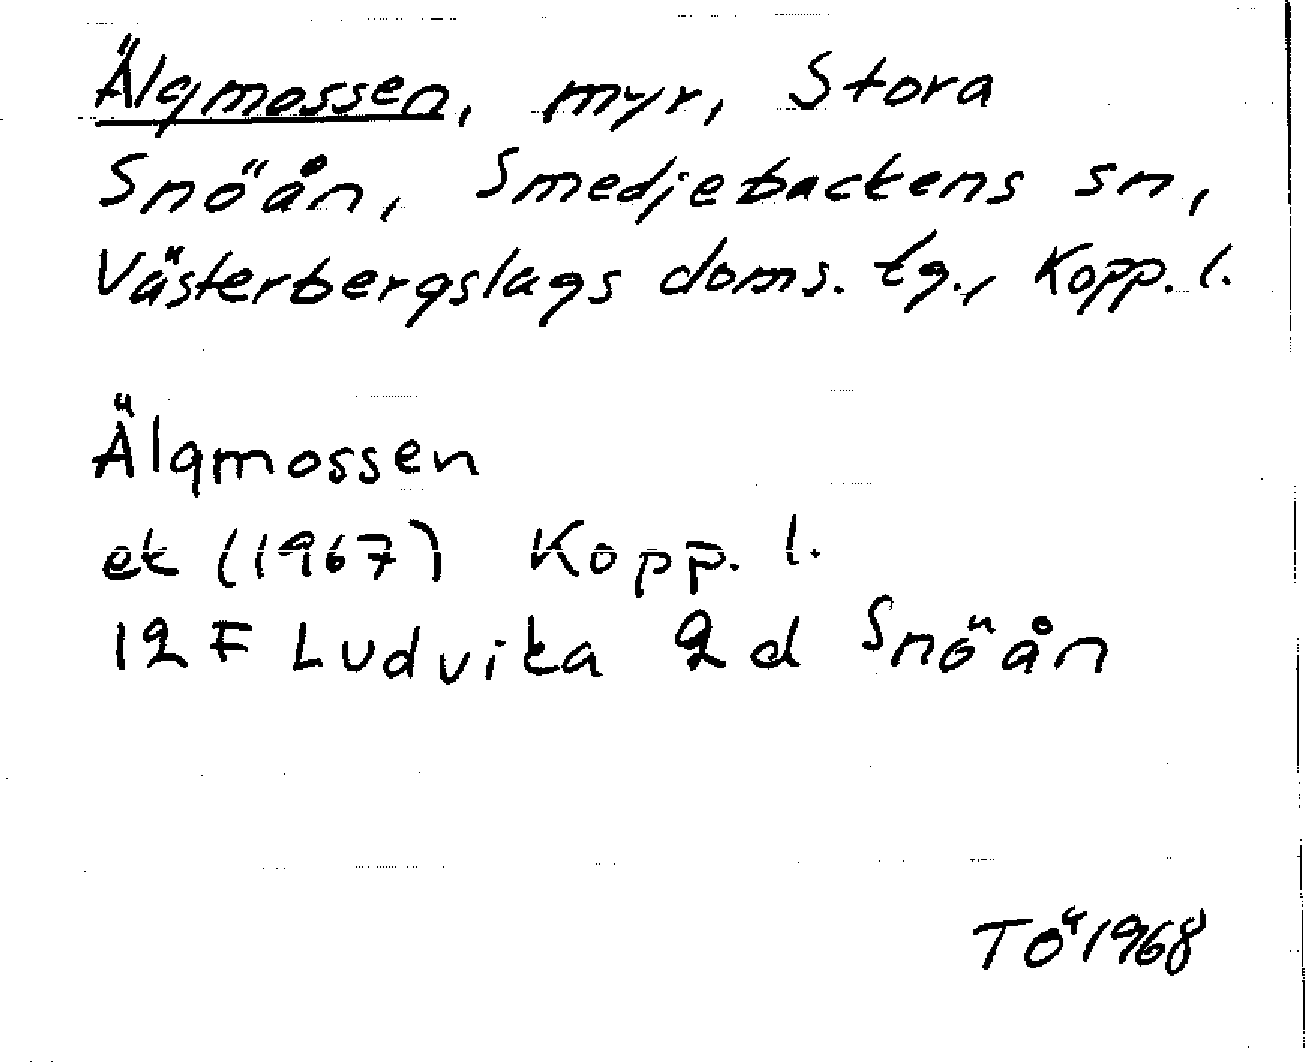 Älgmossen, myr, Stora
Snöån, Smedjebackens sn,
Västerbergslags doms. tg., Kopp. l.
Älgmossen
ek (1967) Kopp. l.
12F Ludvika 2d Snöån
TÖ 1968